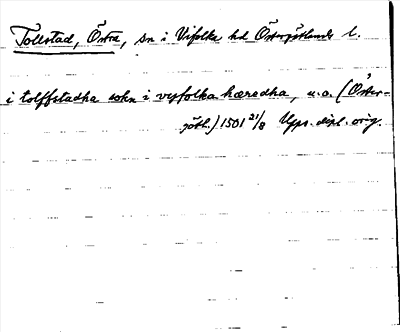 Tollstad, Östra, sn i Vifolka hd Östergötlands l.
i tolffstadha sokn i vifolka hæredha, u.o. (Öster-
götl.) 1501 21/8 Upps. dipl. orig.